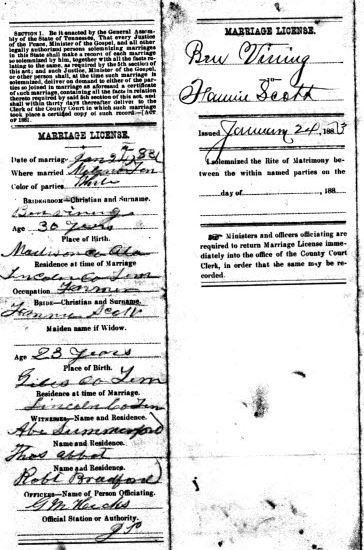 SECTION 1. Be it enacted by the General Assem-
bly of the State of Tennessee, That every Justice
of the Peace, Minister of the Gospel, and all other
legally authorized persons solemnizing marriages
in this State shall make a record of each marriage
so solemnized by him, together with all the facts re-
lating to the same, as required by the 5th section of
this act; and such Justice, Minister of the Gospel,
or other person shall, at the time such marriage is
solemnized, deliver on demand to either of the par-
ties so joined in marriage as aforesaid a certificate
of such marriage, containing all the facts in relation
thereto required by said 5th section of this act, and
shall within thirty days thereafter deliver to the
Clerk of the County Court in which such marriage
took place a certified copy of such record.—[ACT
OF 1881.
MARRIAGE LICENSE.
Date of marriage
Where married
Color of parties White
BRIDEGROOM—Christian and Surname.
Ben Vining
Age 30 Years
Place of Birth.
Madison Co Ala
Residence at time of Marriage
Lincoln Co Tenn
Occupation Farmer
BRIDE—Christian and Surname.
Fannie Scott
Maiden name if Widow.
Age 23 Years
Place of Birth.
Giles Co Tenn
Residence at time of Marriage.
Lincoln Co Tenn
WITNESSES—Name and Residence.
Abe Summerford
Name and Residence.
Thos Abbot
Name and Residence.
Robt Bradford
OFFICERS—Name of Person Officiating.
G M
Official Station or Authority.
J P
MARRIAGE LICENSE.
Ben Vining
TO
Fannie Scott
Issued January 24 188
I solemnized the Rite of Matrimony be-
tween the within named parties on the
day of 188
☞ Ministers and officers officiating are
required to return Marriage License im-
mediately into the office of the County Court
Clerk, in order that the same may be re-
corded.